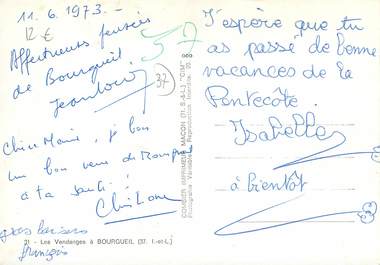 11. 6. 1973. -
12 €
Affectueuses pensées
de Bourgueil.
37
Chère Marie, je bois
un bon verre de
à ta santé !
gros baisers
françois
21 - Les Vendanges à BOURGUEIL (37. I.-et-L.)
COMBIER IMPRIMEUR MACON (71. S.-&-L.) "CIM"
J'espère que tu
as passé de bonne
vacances de la
Pentecôte.
Isabelle
à bientôt